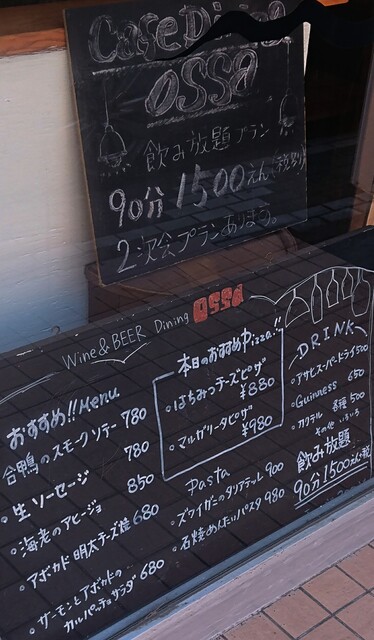 Cafe Dining
OSSA
飲み放題プラン
90分 1500えん(税別)
2次会プランあります。
Wine & BEER Dining OSSA
おすすめ!! Menu
合鴨のスモークソテー 780
・生ソーセージ 780
・海老のアヒージョ 850
・アボカド明太チーズ焼 680
・サーモンとアボカドの
カルパッチョサラダ 680
本日のおすすめPizza!!
・はちみつチーズピザ
¥880
・マルゲリータピザ
¥980
Pasta
・ズワイガニのタリアテッレ 900
・石焼めんたいパスタ 980
DRINK
・アサヒスーパードライ 500
・Guinness 650
・カクテル 各種 500
その他いろいろ
飲み放題
90分1500えん